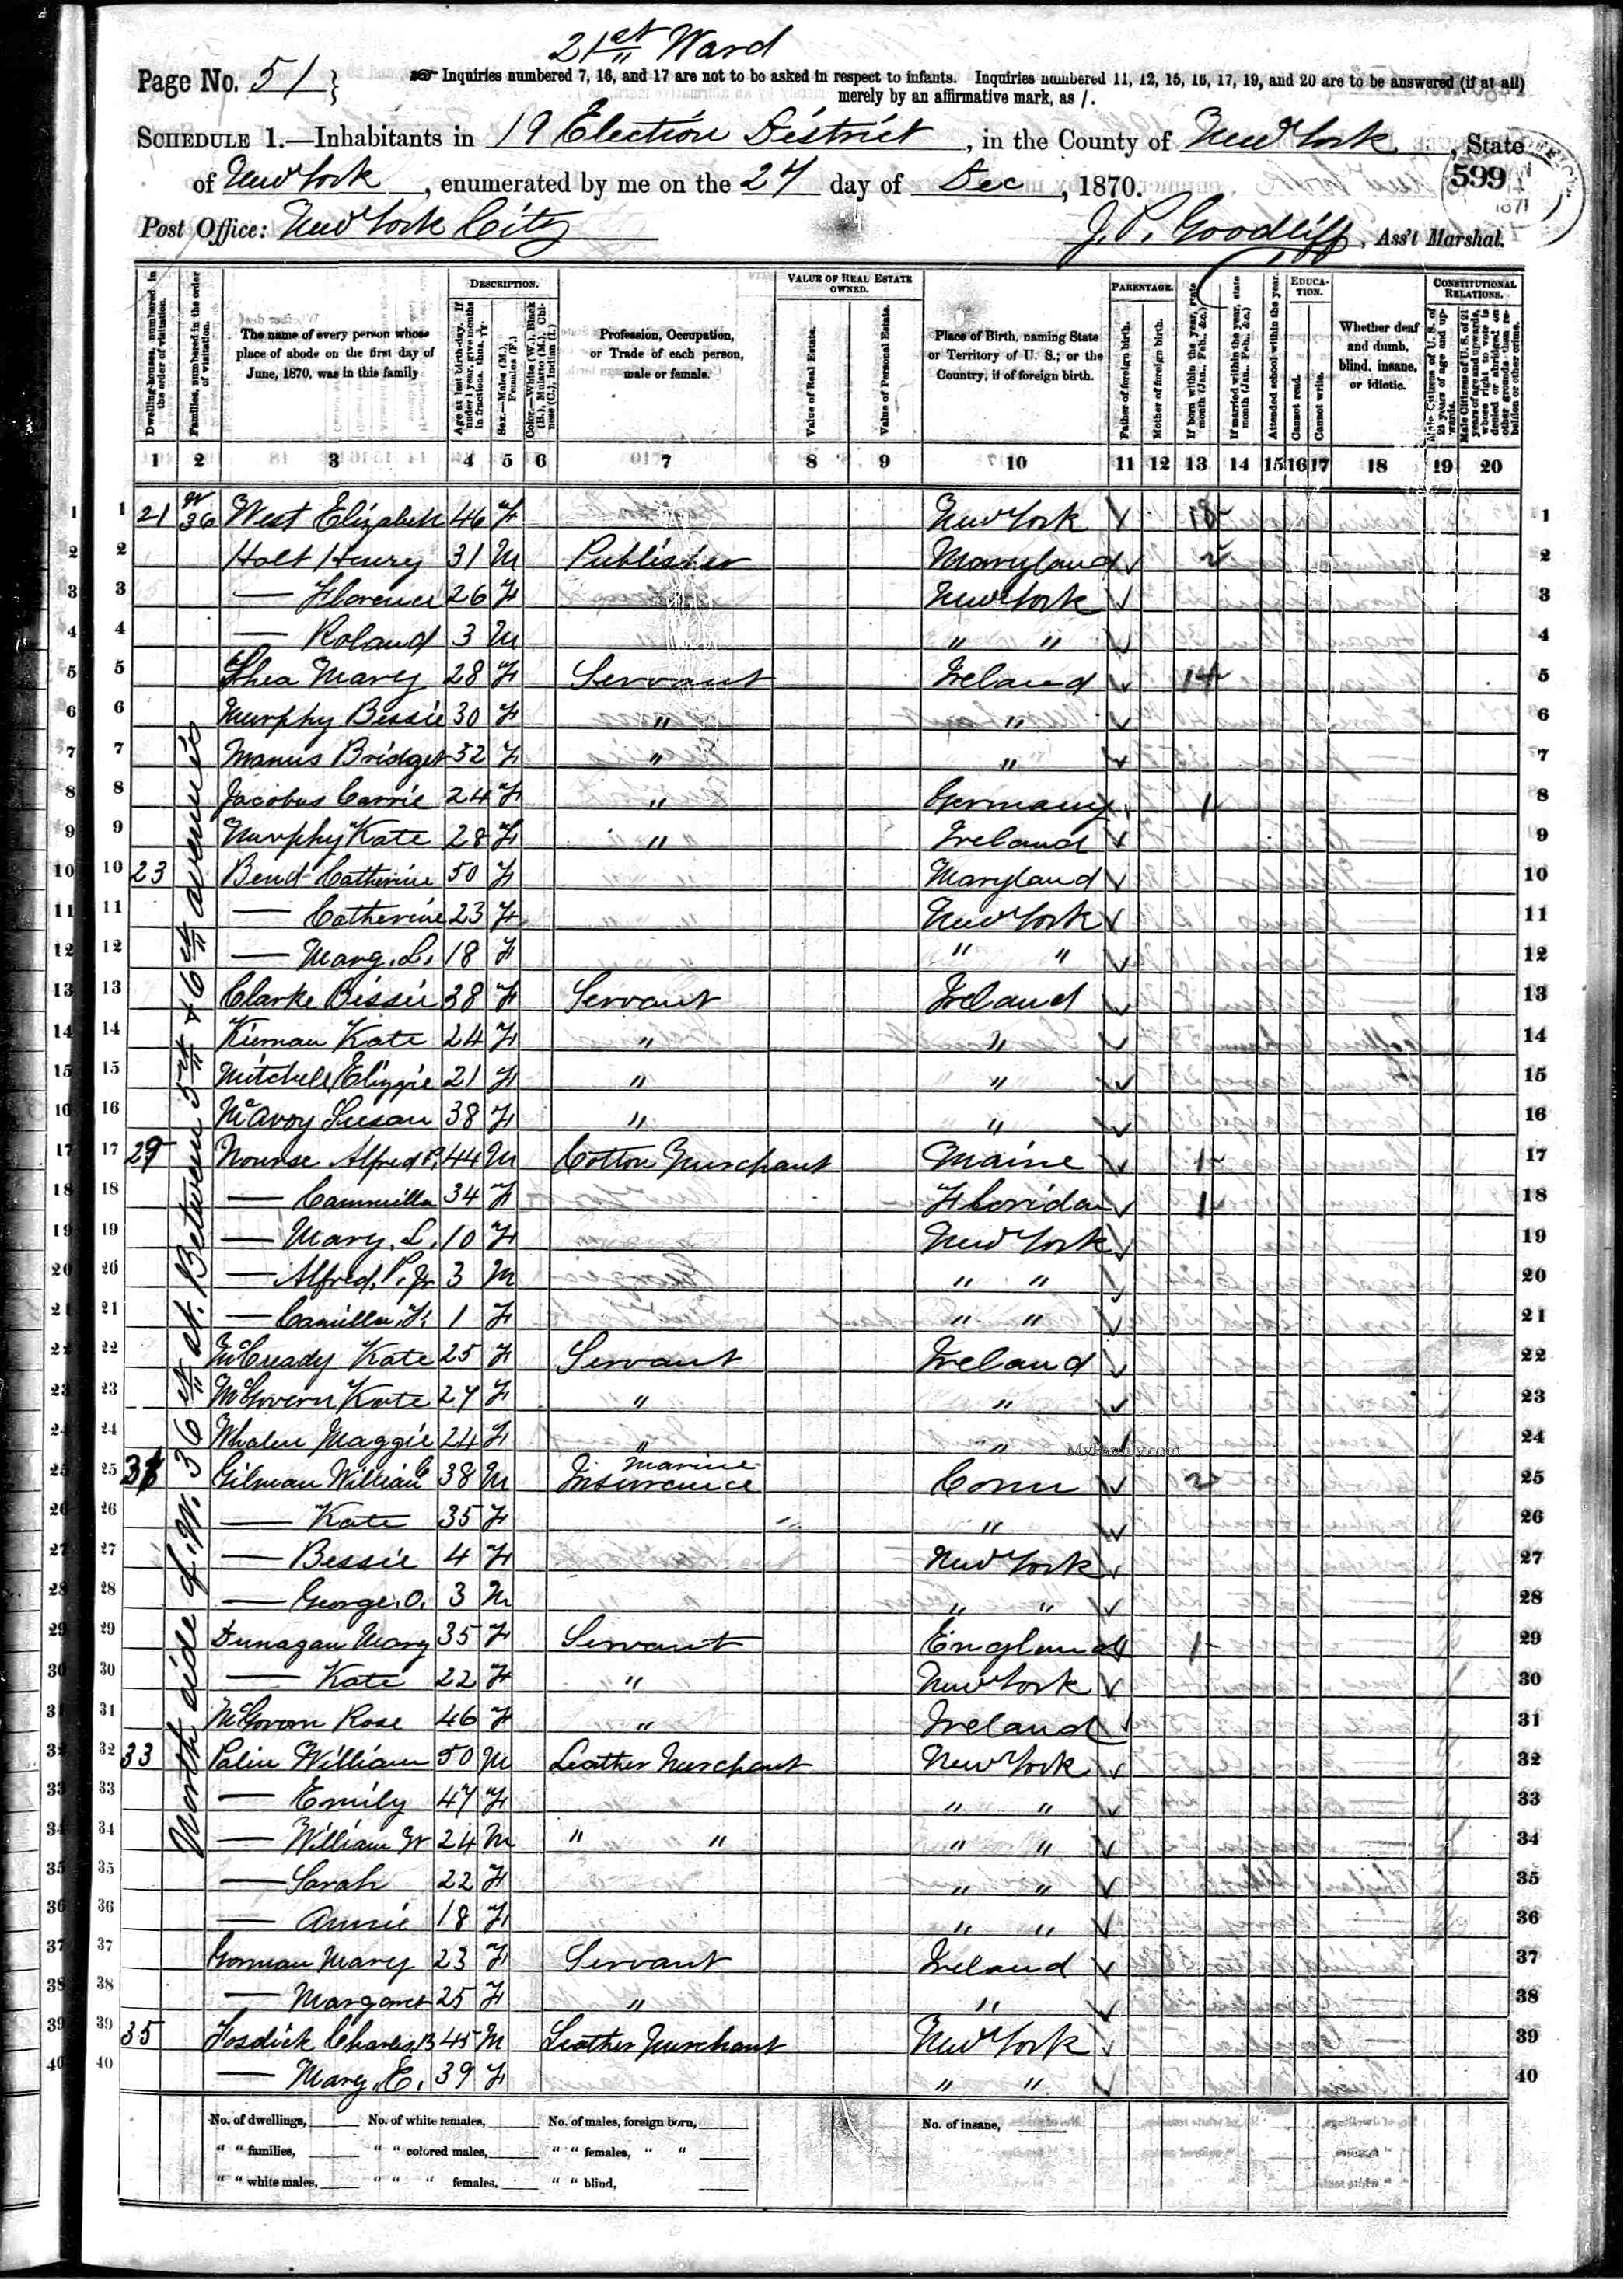 21st Ward
Page No. 51 } Inquiries numbered 7, 16, and 17 are not to be asked in respect to infants. Inquiries numbered 11, 12, 15, 16, 17, 19, and 20 are to be answered (if at all)
merely by an affirmative mark, as /.
SCHEDULE 1.—Inhabitants in 19 Election District, in the County of New York, State
of New York, enumerated by me on the 27 day of Dec, 1870.
599
1871
Post Office: New York City J. P. Goodliff, Ass't Marshal.
Dwelling-houses, numbered in the order of visitation.
Families, numbered in the order of visitation.
The name of every person whose place of abode on the first day of June, 1870, was in this family
DESCRIPTION.
Age at last birth-day. If under 1 year, give months in fractions, thus,
Sex.—Males (M.), Females (F.)
Color.—White (W.), Black (B.), Mulatto (M.), Chinese (C.), Indian (I.)
Profession, Occupation, or Trade of each person, male or female.
VALUE OF REAL ESTATE OWNED.
Value of Real Estate.
Value of Personal Estate.
Place of Birth, naming State or Territory of U. S.; or the Country, if of foreign birth.
PARENTAGE.
Father of foreign birth.
Mother of foreign birth.
If born within the year, state month (Jan., Feb., &c.)
If married within the year, state month (Jan., Feb., &c.)
Attended school within the year.
EDUCATION.
Cannot read.
Cannot write.
Whether deaf and dumb, blind, insane, or idiotic.
CONSTITUTIONAL RELATIONS.
Male Citizens of U. S. of 21 years of age and upwards.
Male Citizens of U. S. of 21 years of age and upwards, whose right to vote is denied or abridged on other grounds than rebellion or other crime.
1 2 3 4 5 6 7 8 9 10 11 12 13 14 15 16 17 18 19 20
North side of W. 36th st. Between 5th & 6th avenues
1 21 36 West Elizabeth 46 F New York 1
2 Holt Henry 31 M Publisher Maryland 2
3 — Florence 26 F New York 3
4 — Roland 3 M " " 4
5 Shea Mary 28 F Servant Ireland 14 5
6 Murphy Bessie 30 F " " 6
7 Manus Bridget 32 F " " 7
8 Jacobus Carrie 24 F " Germany 1 8
9 Murphy Kate 28 F " Ireland 9
10 23 Bend Catherine 50 F Maryland 10
11 — Catherine 23 F New York 11
12 — Mary. L. 18 F " " 12
13 Clarke Bessie 38 F Servant Ireland 13
14 Kiernan Kate 24 F " " 14
15 Mitchell Lizzie 21 F " " 15
16 McAvoy Susan 38 F " " 16
17 29 Nourse Alfred P. 44 M Cotton Merchant Maine 1 17
18 — Cammilla 34 F Florida 1 18
19 — Mary. L. 10 F New York 19
20 — Alfred. P. Jr 3 M " " 20
21 — Camilla. F. 1 F " " 21
22 McCready Kate 25 F Servant Ireland 22
23 McGovern Kate 27 F " " 23
24 Whalen Maggie 24 F " " 24
MyFamily.com
25 31 Gilman William C 38 M Marine Insurance Conn 2 25
26 — Kate 35 F " 26
27 — Bessie 4 F New York 27
28 — George. O. 3 M " " 28
29 Dunagan Mary 35 F Servant England 1 29
30 — Kate 22 F " New York 30
31 McGovern Rose 46 F " Ireland 31
32 33 Palin William 50 M Leather Merchant New York 32
33 — Emily 47 F " " 33
34 — William W 24 M " " " " 34
35 — Sarah 22 F " " 35
36 — Annie 18 F " " 36
37 Gorman Mary 23 F Servant Ireland 37
38 — Margaret 25 F " " 38
39 35 Fosdick Charles. B 45 M Leather Merchant New York 39
40 — Mary. E. 39 F " " 40
No. of dwellings, No. of white females, No. of males, foreign born, No. of insane,
" " families, " " colored males, " " females, " "
" " white males, " " " females, " " blind,